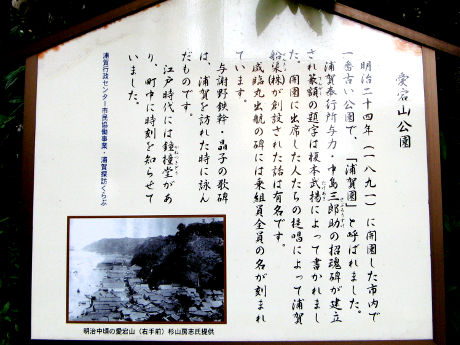 愛宕山公園
明治二十四年（一八九一）に開園した市内で
一番古い公園で、「浦賀園」と呼ばれました。
浦賀奉行所与力・中島三郎助の招魂碑が建立
され篆額の題字は榎本武揚によって書かれまし
た。開園に出席した人たちの提唱によって浦賀
船渠㈱が創設された話は有名です。
咸臨丸出航の碑には乗組員全員の名が刻まれ
ています。
与謝野鉄幹・晶子の歌碑
は、浦賀を訪れた時に詠ん
だものです。
江戸時代には鐘撞堂があ
り、町中に時刻を知らせて
いました。
浦賀行政センター市民協働事業・浦賀探訪くらぶ
明治中頃の愛宕山（右手前）杉山房志氏提供